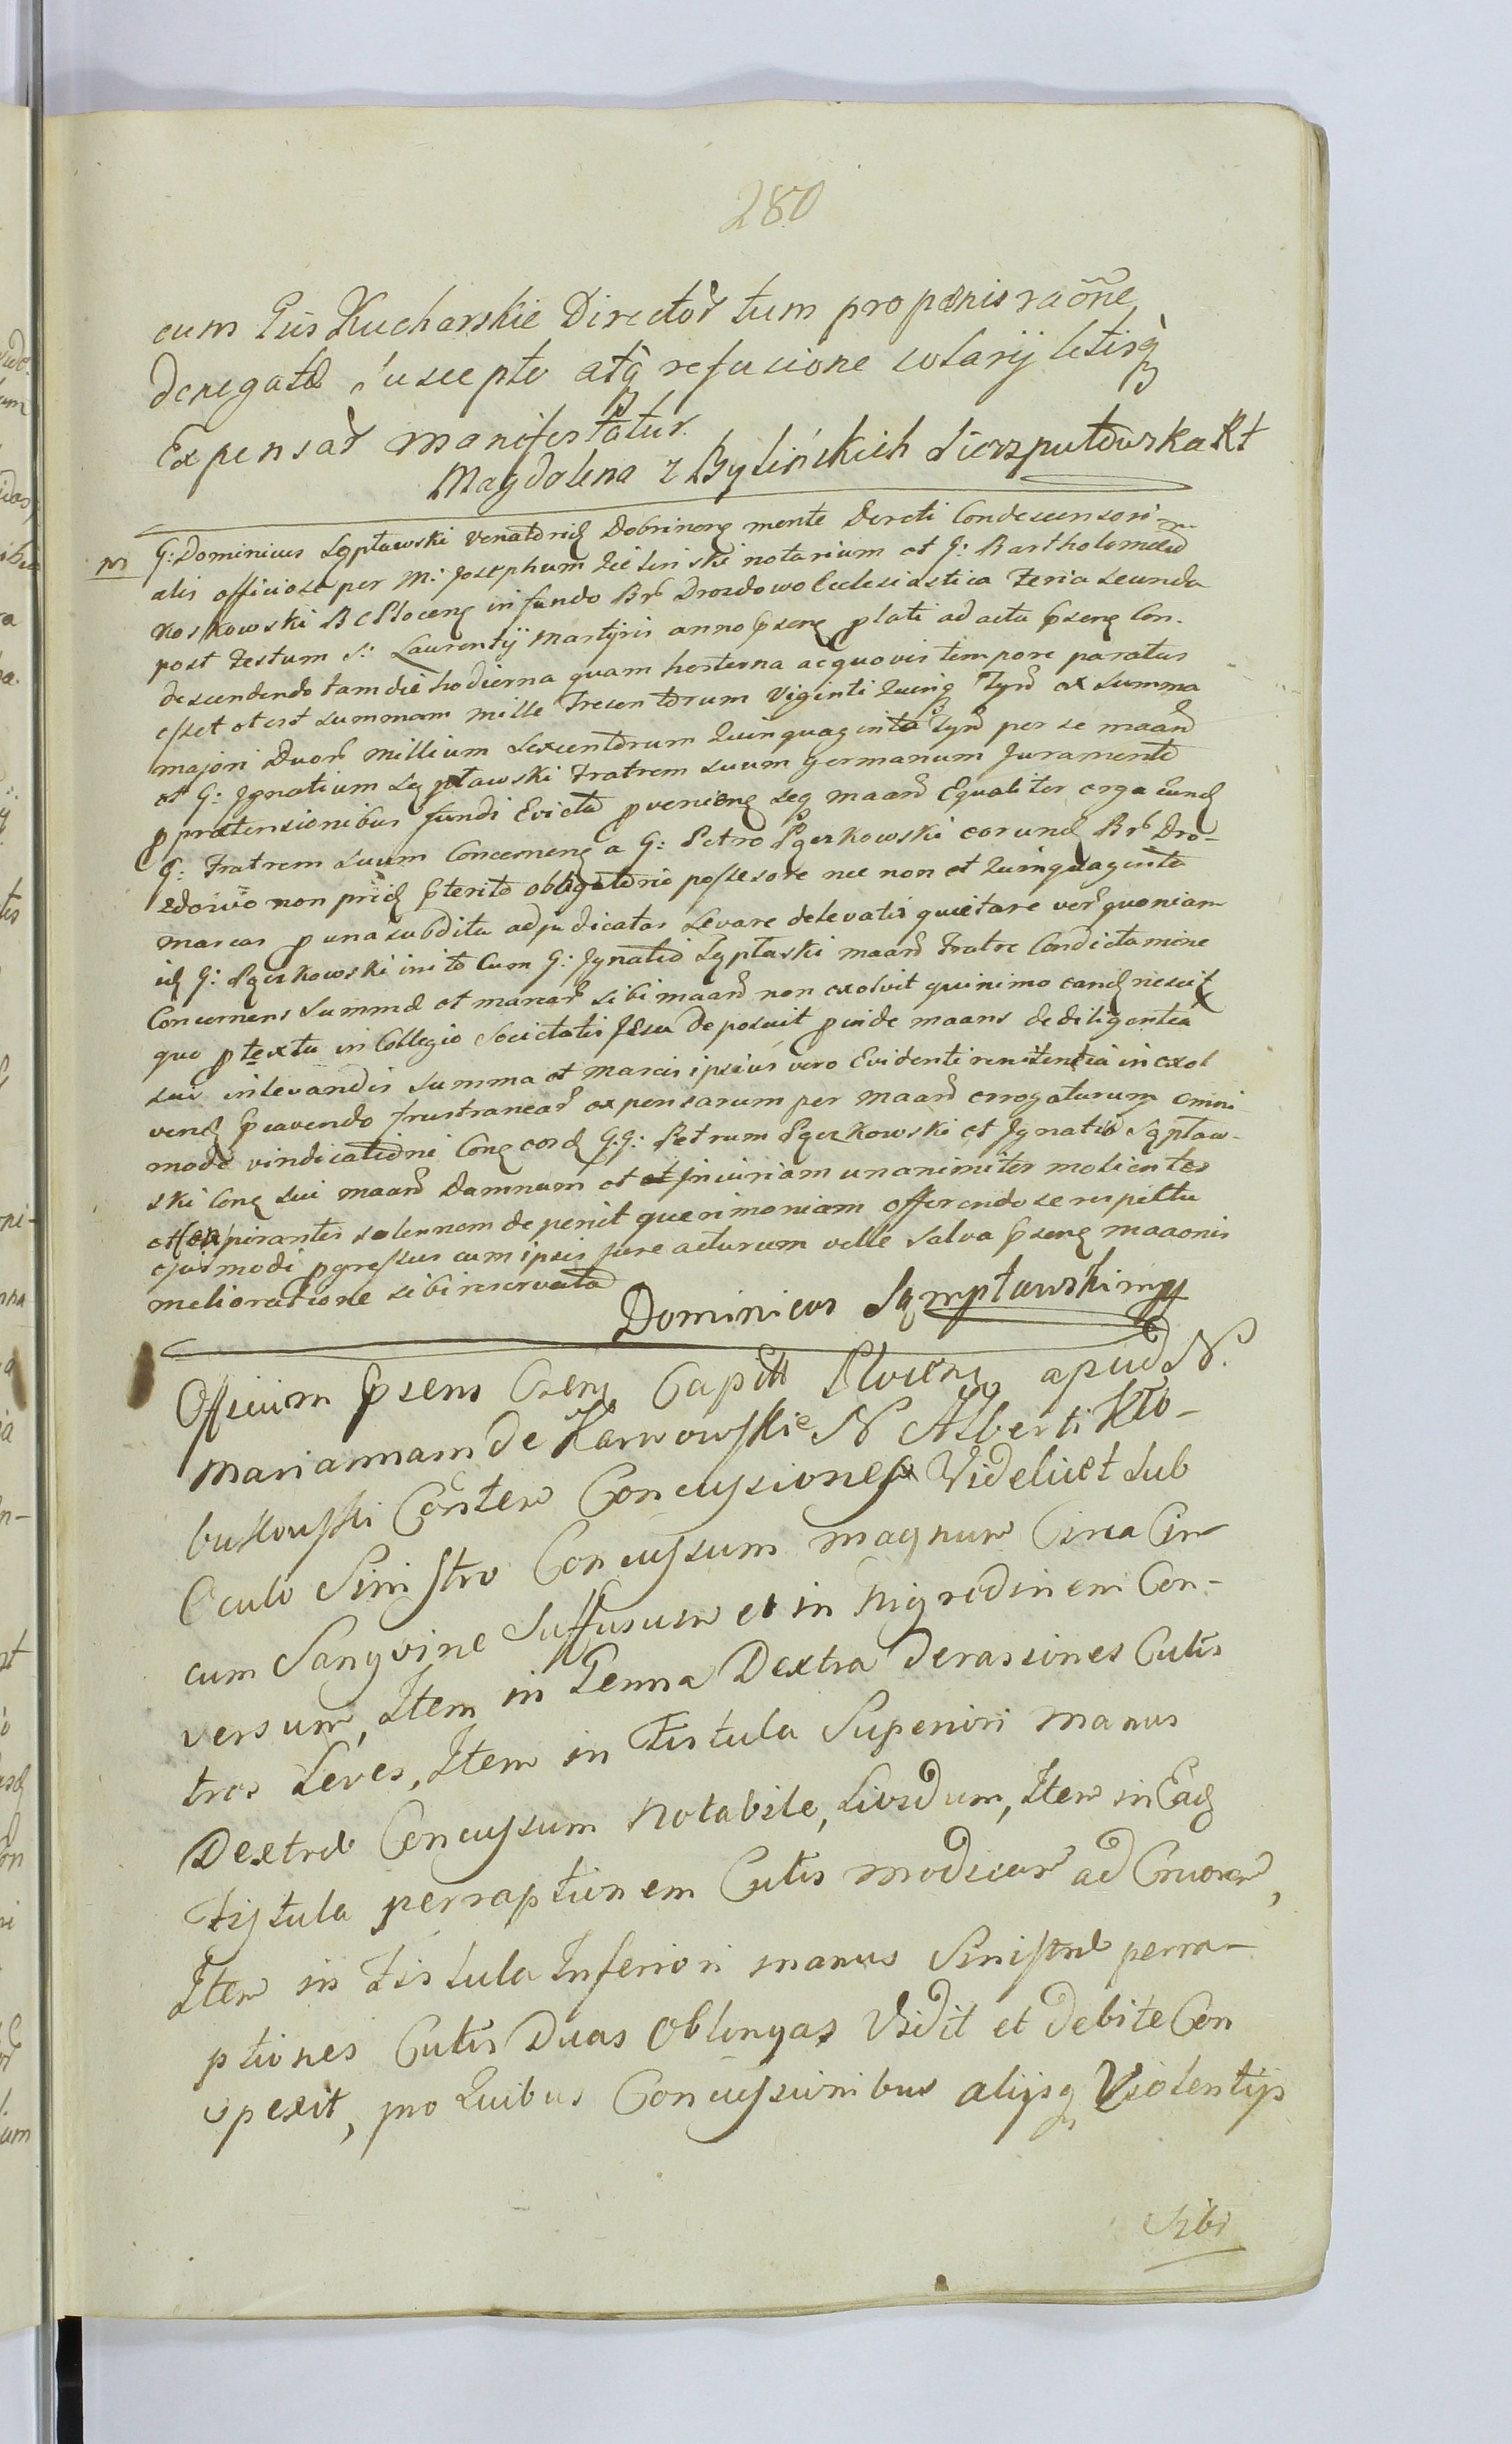 280
cum Gris Kucharskie Director tum pro pænis raõne
denegatæ suscepto atq̃ refusione solarij letisq̃
Expensar manifestatur.
Magdalena z Bylińskich Sierzputowska Rt
M G: Dominicus Sęptawski Venatorid Dobrinen mente Decreti Condescensori-
alis officiose per M: Josephum Zieliński notarium et G: Bartholomæum
Koskowski BCPlocen in fundo Br Drozdowo Ecclesiastica Feria secunda
post Festum S: Laurentÿ Martÿris anno pr̃sen plati ad acta pr̃sen Con-
descendendo tam die hodierna quam hesterna acquovis tempore paratus
esset et est summam Mille Trecentorum Viginti Quinq̃ Tyn̄ ex summa
majori Duor Millium Sexcentorum Quinquaginta Tyn̄ per se maan̄
et G: Ignatium Sęptawski Fratrem suum germanum Juramento
p prætensionibus fundi Evicta p venien seq maan̄ Equaliter erga eund
G: Fratrem suum Concernen a G: Petro Pgerkowski eorund Br Dro-
zdowo non prid pr̃terito obligatorio possesore nec non et Quinquaginta
marcas p una subdita adjudicatas Levare delevatis quietare ver quoniam
id G: Pgerkowski inito Cum G: Ignatio Sęptaski maan̄ Fratre Condictamine
Concernens Summæ et marcar sibi maan̄ non exolvit quinimo eand nescit
quo p textu in Collegio Societatis Jesu deposuit p inde maans de diligentia
sua in levandis summa et marcis ipsius vero Evidenti renitentia in exol
vend pr̃cavendo frustranear expensarum per maan̄ erogaturum omni-
modæ vindicationi Con eosd G.G: Petrum Pgerkowski et Ignatio Sęptaw-
ski Con sui maan̄ Damnum et et Injuriam unanimiter molientes
et conspirantes solennem deponit querimoniam offerendo se respectu
ejusmodi pgressus cum ipsis jure acturum velle Salva pr̃sen maaonis
melioratione sibi reservata
Dominicus Sęmptawski mp
Officium pr̃sens Cren Capitt Plocen apud N.
Mariannam de Karwowskie N Alberti Kło-
bukowski Conter Concussiones Videlicet Sub
Oculo Sinistro Concussum magnum Circa Cir
cum Sangvine Suffusum et in Nigredinem Con-
versum, Item in Genna Dextra Derassiones Cutis
tres Leves, Item in Fistula Superiori manus
Dextræ Concussum Notabile, Lividum, Item in Ead
Fistula perraptionem Cutis modicam ad Cruorem,
Item in Fistula Inferiori manus Sinistræ perra-
ptiones Cutis Duas Oblongas Vidit et debite Con
spexit, pro Quibus Concussionibus alijsq̃ Violentijs
Sibi